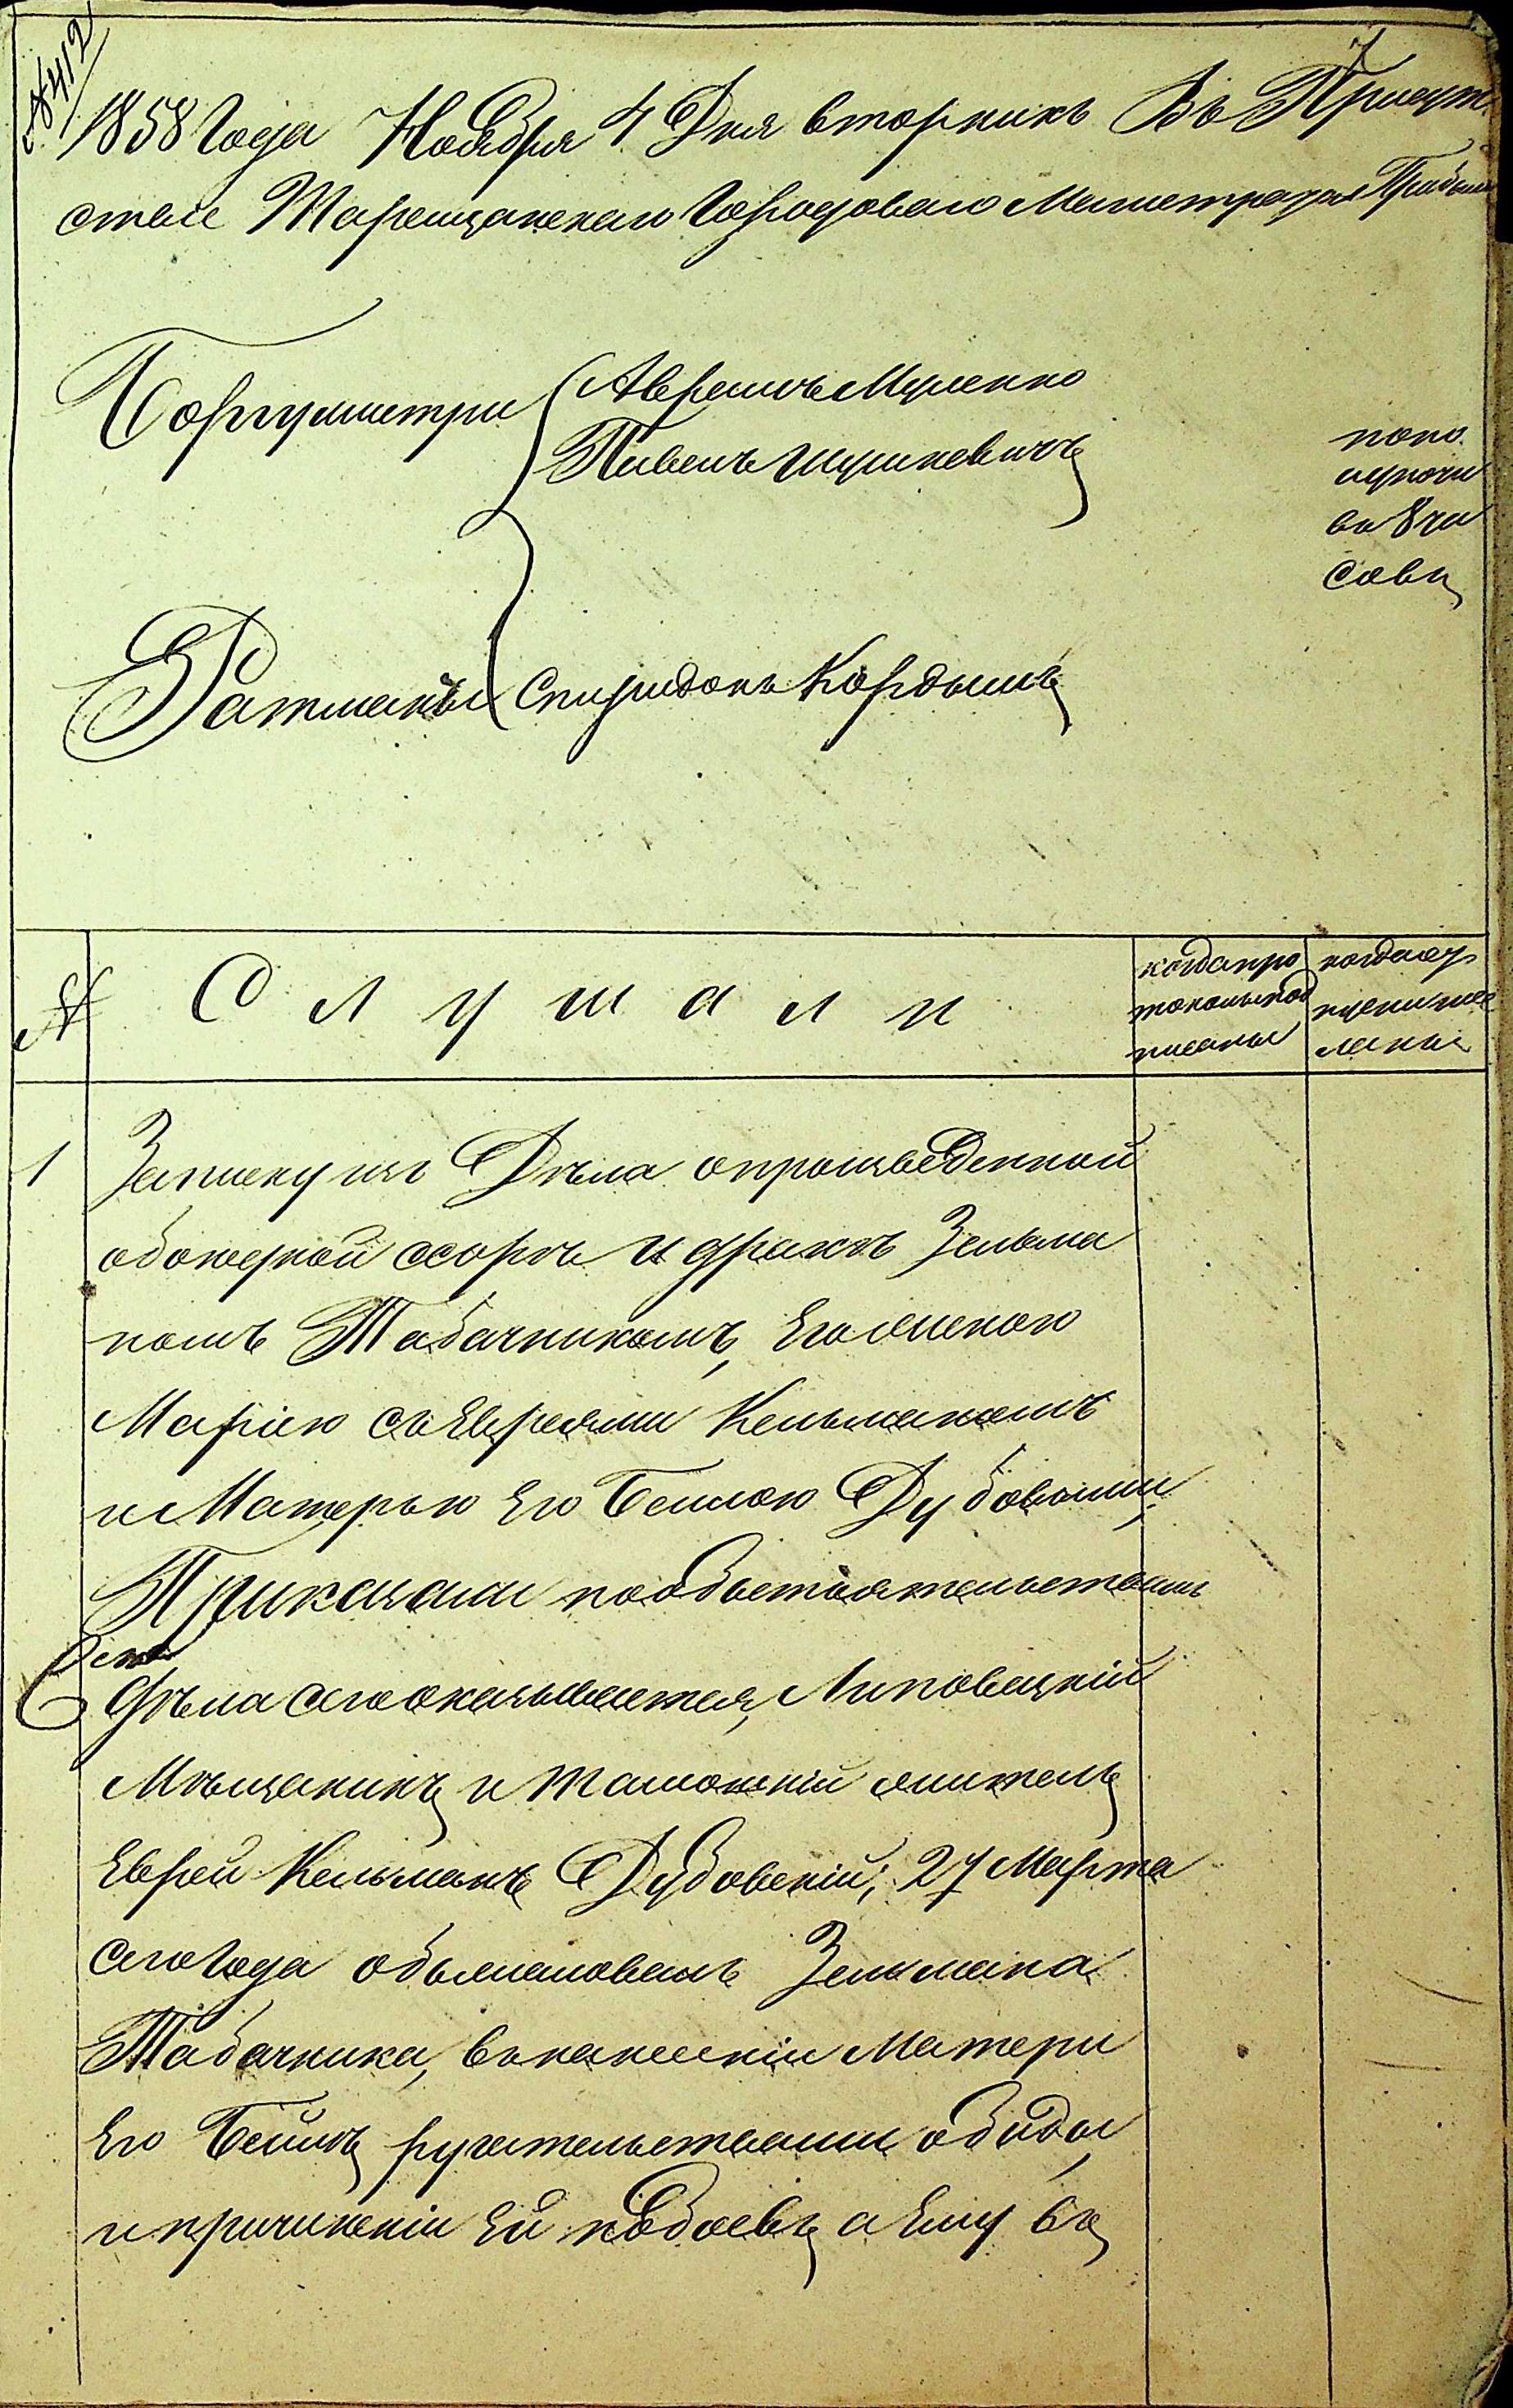 № 412
7
1858 Года Ноября 4 Дня вторникъ Въ Присут
ствіе Таращанскаго Городоваго Магистрата Прибыли
Боргумистри Авремъ Муленко
Пивень Шушкевичъ
попо
луночи
въ 8 ча
совъ
Ратманы Спиридонъ Кордышъ
№ Слушали
когда про
токолы под
писаны
когда из
пол
нены
1 Записку изъ Дѣла о произведенной
обоюдной ссорѣ и дракѣ Зельма
номъ Табачникомъ, Его женою
Маріею съ Евреями Кельманомъ
и Матерью Его Бейлою Дубовыми,
Приказали по обстоятельствамъ
дѣла сего оказывается, Липовецкій
Мѣщанинъ и тамошній житель
Еврей Кельманъ Дубовскій; 27 Марта
сего Года обжаловалъ Зельмана
Табачника, въ нанесеніи Матери
Его Бейлѣ ругательствами обиды,
и причиненіи Ей побоевъ а Ему въ